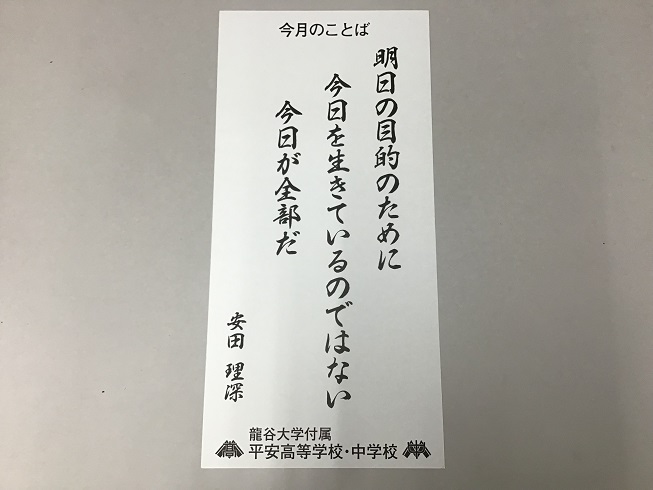 今月のことば
明日の目的のために
今日を生きているのではない
今日が全部だ
安田 理深
龍谷大学付属
平安高等学校・中学校